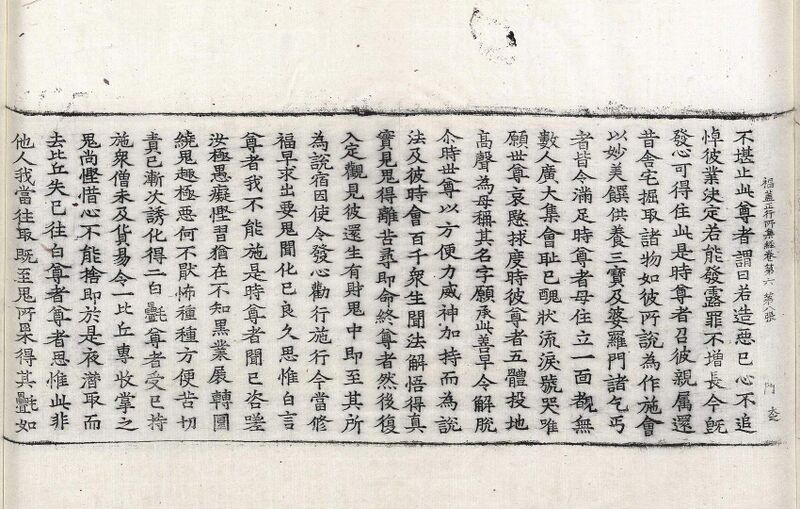 福蓋正行所集經卷第六 第八張 門
不堪止此尊者謂曰若造惡已心不追
悼彼業決定若能發露罪不增長今旣
發心可得住此是時尊者召彼親属還
昔舍宅掘取諸物如彼所說為作施會
以妙美饌供養三寶及婆羅門諸乞丐
者皆令滿足時尊者母住立一面都無
數人廣大集會耻已醜狀流淚號哭唯
願世尊哀愍捄度時彼尊者五體投地
高聲為母稱其名字願承此善早令解脫
尒時世尊以方便力威神加持而為說
法及彼時會百千衆生聞法解悟得真
實見鬼得離苦尋即命終尊者然後復
入定觀見彼還生有財鬼中即至其所
為說宿因使令發心勸行施行今當修
福早求出要鬼聞化已良久思惟白言
尊者我不能施是時尊者聞已咨嗟
汝極愚癡慳習猶在不知黒業展轉圍
繞鬼趣極惡何不猒怖種種方便苦切
責已漸次誘化得二白㲲尊者受已持
施衆僧未及貨易令一比丘專收掌之
鬼尚慳惜心不能捨即於是夜潛取而
去比丘失已往白尊者尊者思惟此非
他人我當往取旣至鬼所果得其㲲如